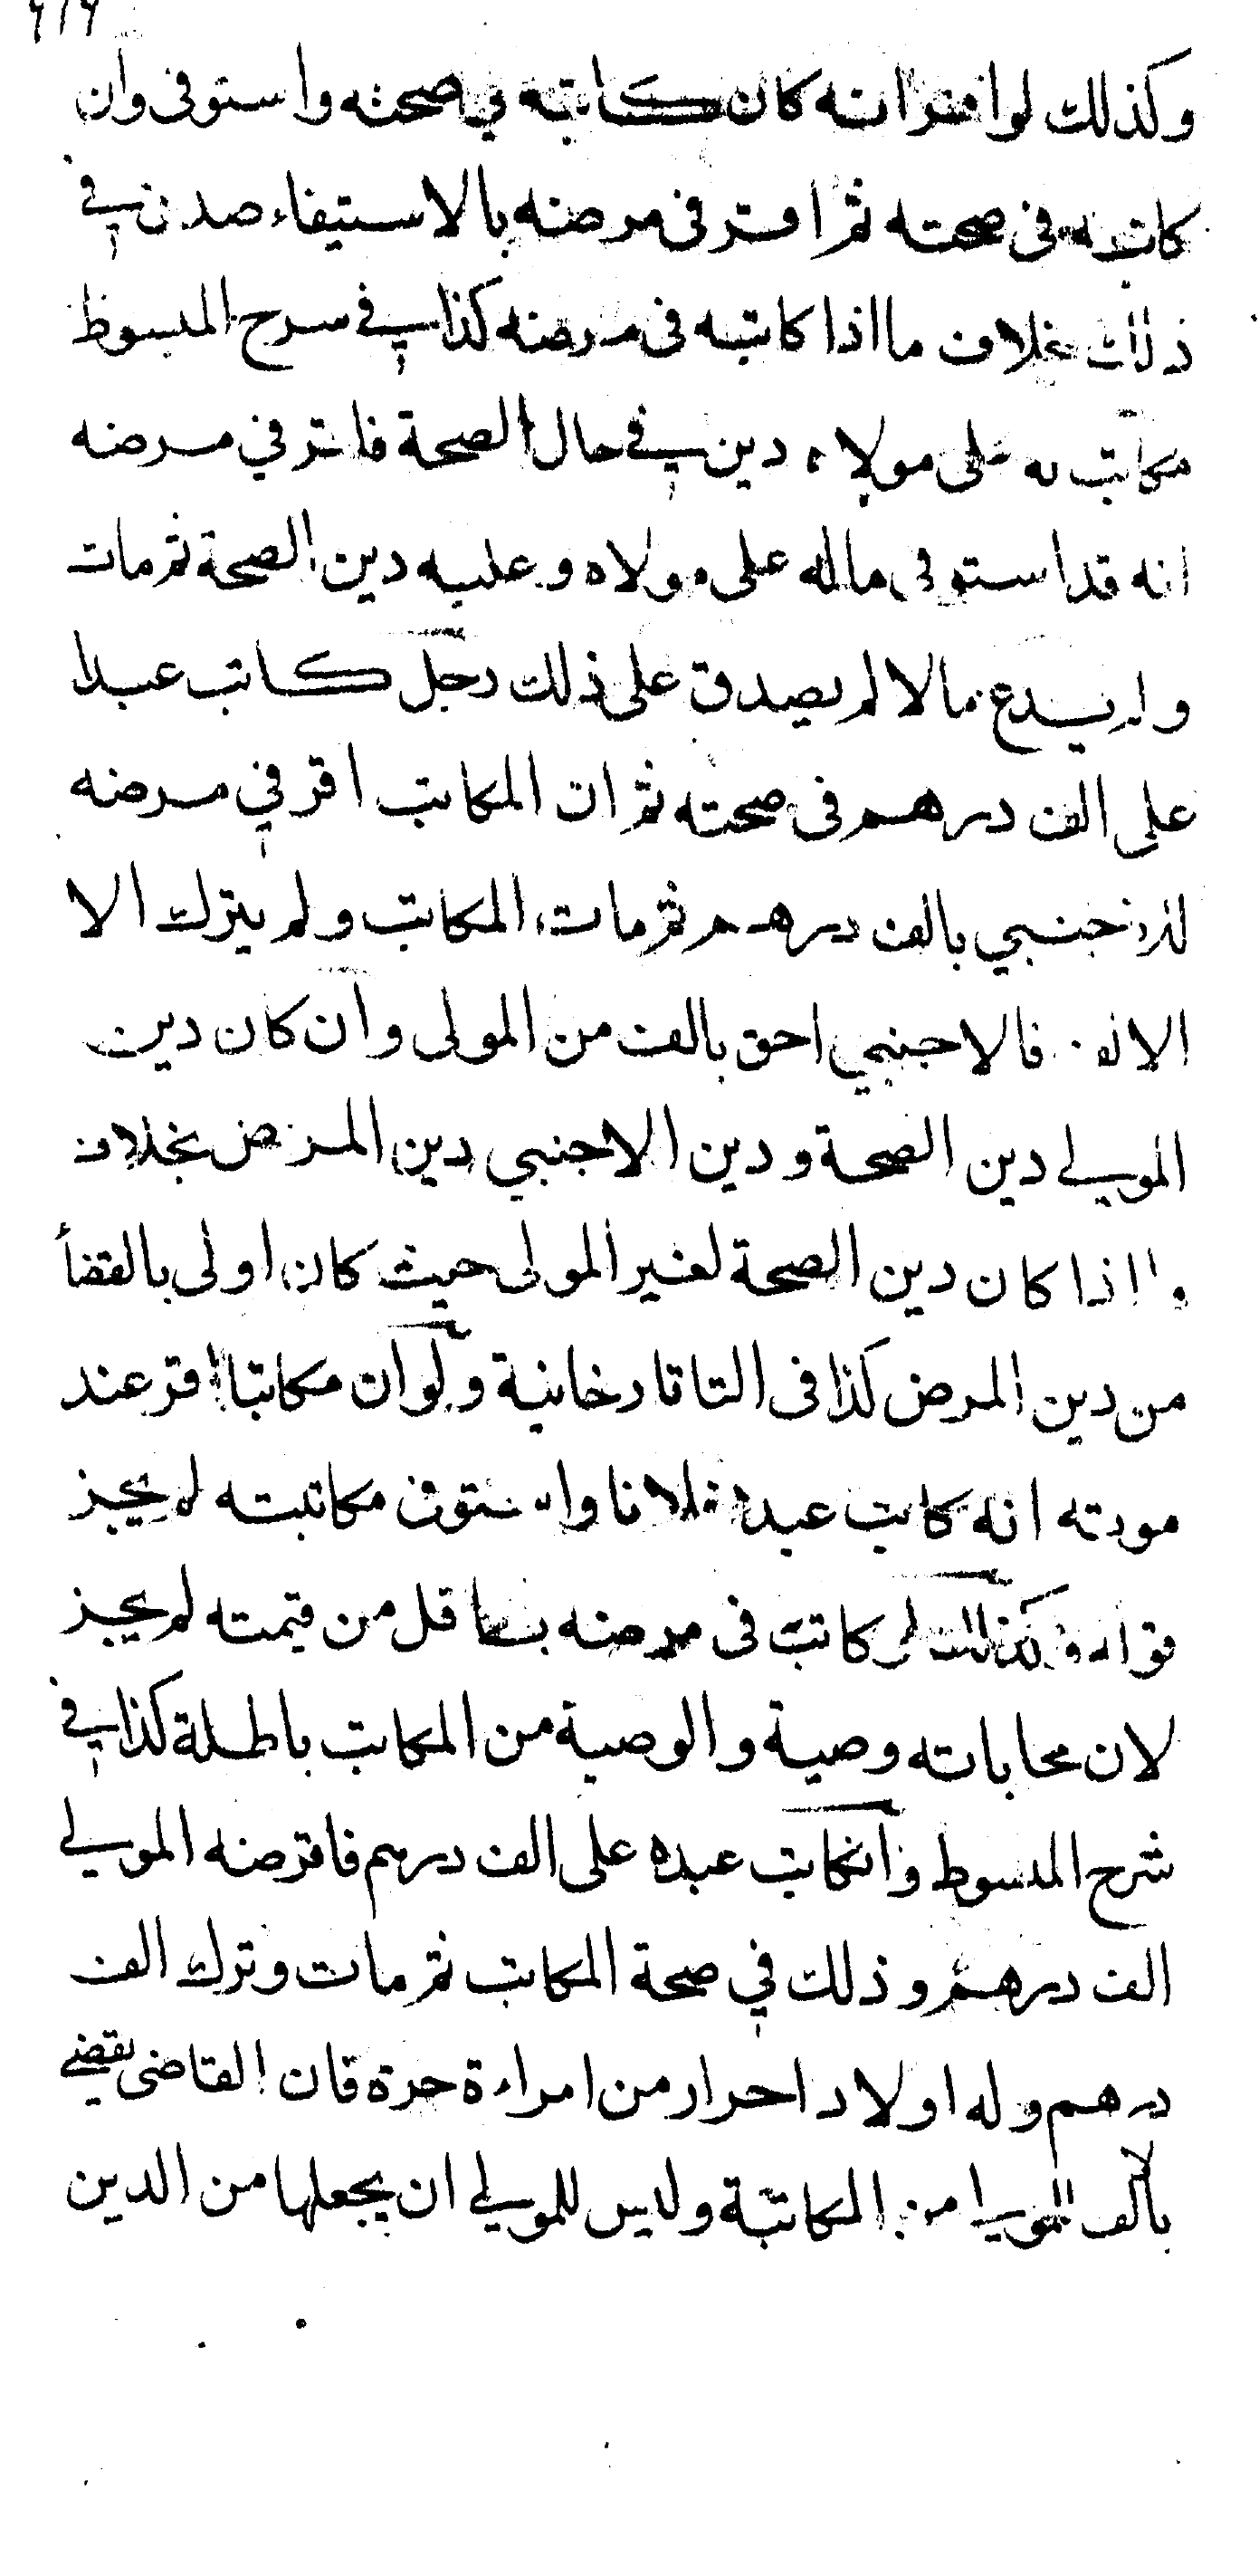 ٦١٦
وكذلك لو اقر انه كان كاتبه في صحته واستوفى وان
كاتبه في صحته ثم اقر فى مرضه بالاستيفاء صدق في
ذلك بخلاف ما اذا كاتبه فى مرضه كذا في شرح المبسوط
مكاتب له على مولاه دين في حال الصحة فاقر في مرضه
انه قد استوفى ماله على مولاه وعليه دين الصحة ثم مات
ولم يدع مالا لم يصدق على ذلك رجل كاتب عبدا
على الف درهم فى صحته ثم ان المكاتب اقر في مرضه
للاجنبي بالف درهم ثم مات المكاتب ولم يترك الا
الالف فالاجنبي احق بالف من المولى وان كان دين
المولى دين الصحة ودين الاجنبي دين المرض بخلاف
ما اذا كان دين الصحة لغير المولى حيث كان اولى بالقضأ
من دين المرض كذا فى التاتارخانية ولو ان مكاتبا اقر عند
موته انه كاتب عبده فلانا واستوفى مكاتبته لم يجز
قوله وكذلك لو كاتبت فى مرضه باقل من قيمته لم يجز
لان محاباته وصية والوصية من المكاتب باطلة كذا في
شرح المبسوط وان كاتب عبده على الف درهم فاقرضه المولى
الف درهم وذلك في صحة المكاتب ثم مات وترك الف
درهم وله اولاد احرار من امراءة حرة فان القاضى يقضي
بالف للمولى من المكاتبة وليس للمولى ان يجعلها من الدين